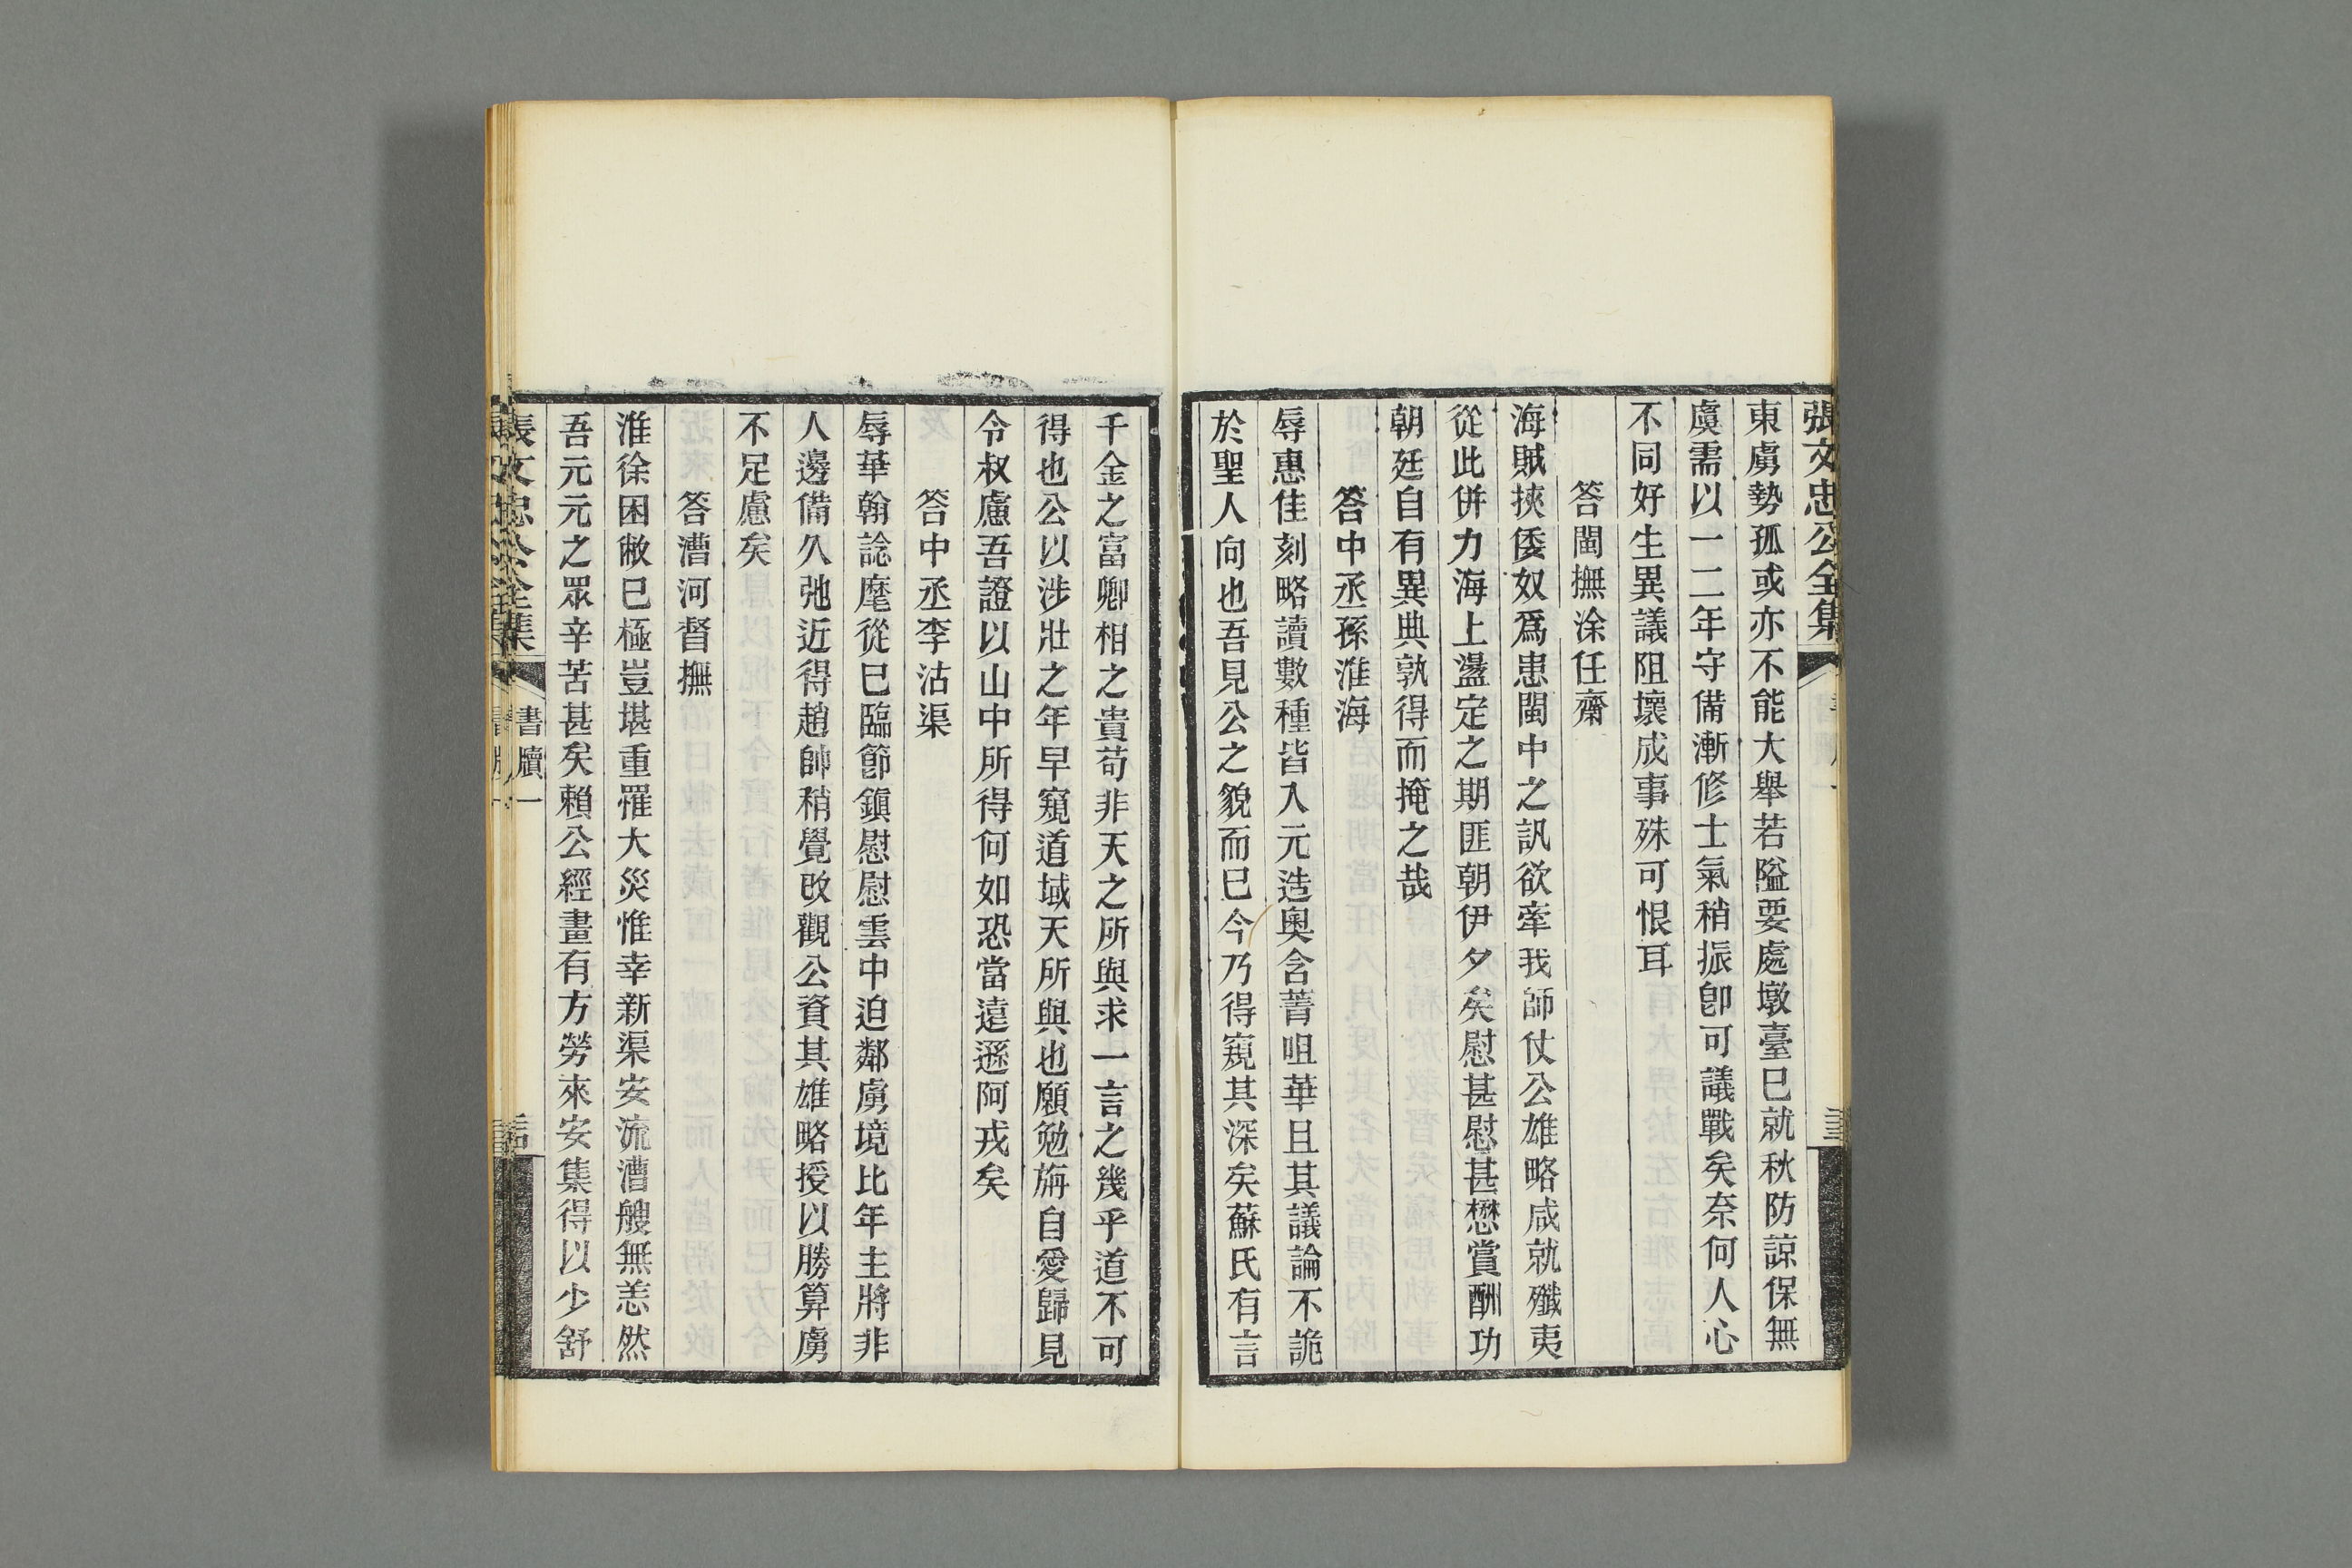 張文忠公全集
東虜勢孤或亦不能大舉若隘要處墩臺已就秋防諒保無
虞需以一二年守備漸修士氣稍振卽可議戰矣奈何人心
不同好生異議阻壞成事殊可恨耳
答閩撫涂任齋
海賊挾倭奴爲患閩中之訊欲牽我師仗公雄略咸就殲夷
從此併力海上盪定之期匪朝伊夕矣慰甚慰甚懋賞酬功
朝廷自有異典孰得而掩之哉
答中丞孫淮海
辱惠佳刻略讀數種皆入元造奧含菁咀華且其議論不詭
於聖人向也吾見公之貌而已今乃得窺其深矣蘇氏有言
千金之富卿相之貴苟非天之所與求一言之幾乎道不可
得也公以涉壯之年早窺道域天所與也願勉旃自愛歸見
令叔慮吾證以山中所得何如恐當遠遜阿戎矣
答中丞李沽渠
辱華翰諗麾從已臨節鎮慰慰雲中迫鄰虜境比年主將非
人邊備久弛近得趙帥稍覺改觀公資其雄略授以勝算虜
不足慮矣
答漕河督撫
淮徐困敝已極豈堪重罹大災惟幸新渠安流漕艘無恙然
吾元元之眾辛苦甚矣賴公經畫有方勞來安集得以少舒
張文忠公全集
書牘一